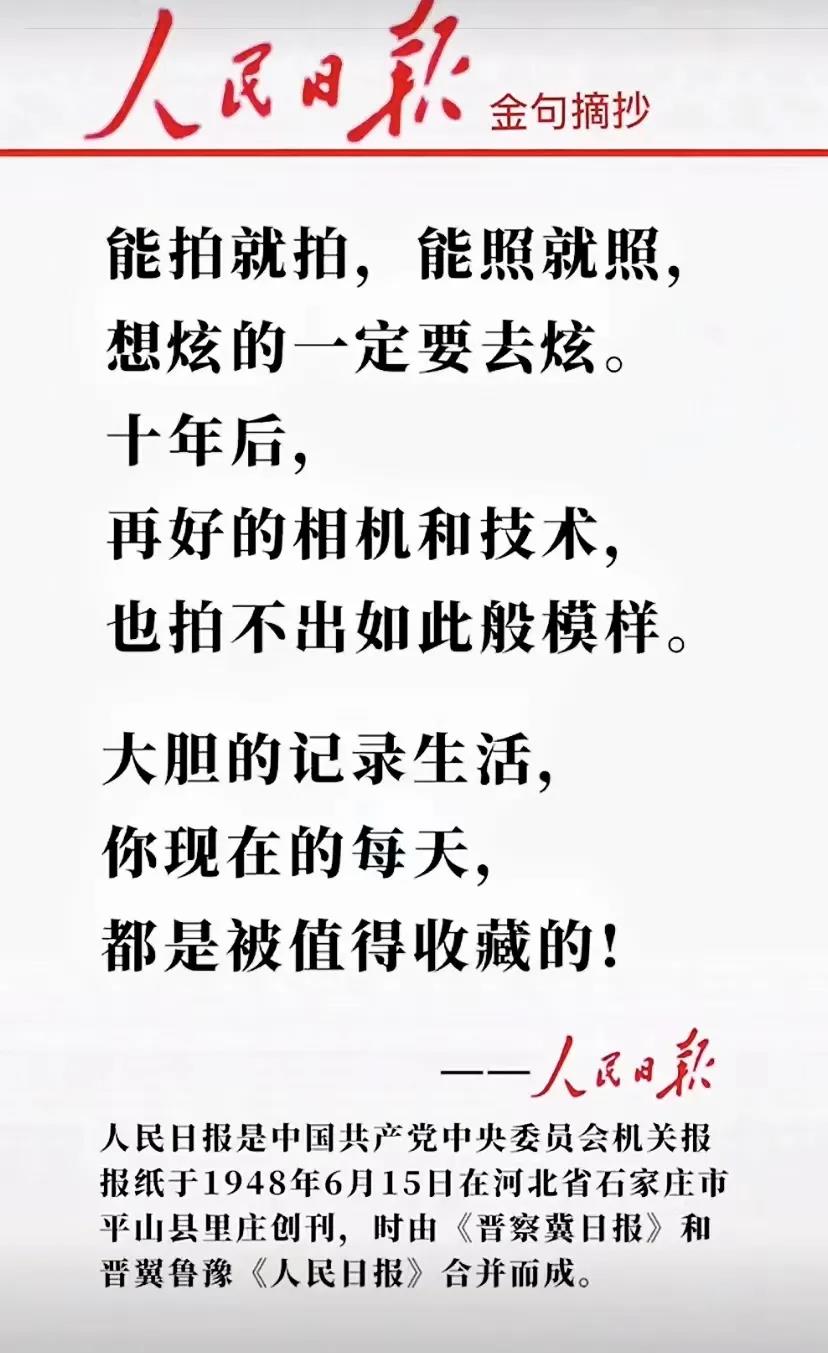 人民日报 金句摘抄
能拍就拍，能照就照，
想炫的一定要去炫。
十年后，
再好的相机和技术，
也拍不出如此般模样。
大胆的记录生活，
你现在的每天，
都是被值得收藏的！
——人民日报
人民日报是中国共产党中央委员会机关报
报纸于1948年6月15日在河北省石家庄市
平山县里庄创刊，时由《晋察冀日报》和
晋翼鲁豫《人民日报》合并而成。